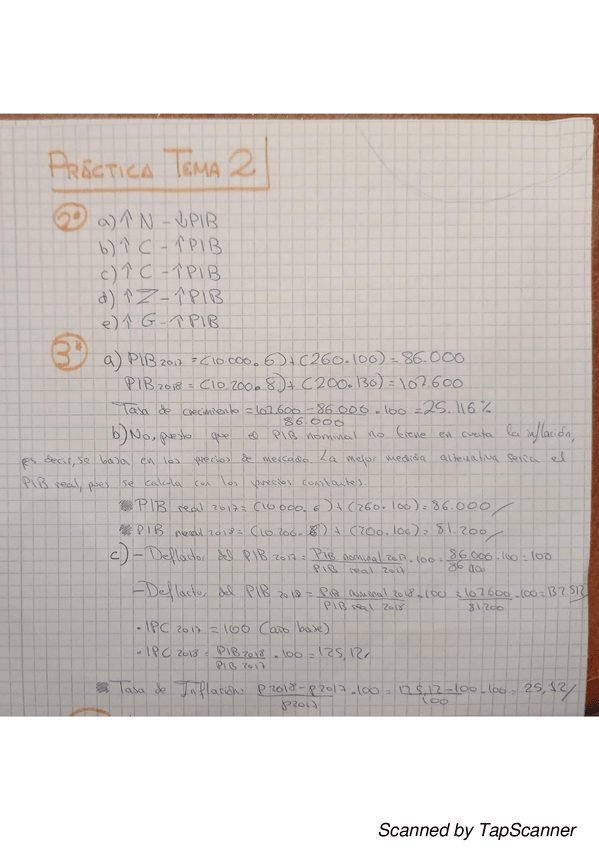 PRÁCTICA TEMA 2
2º a) ↑ N - ↓ PIB
b) ↑ C - ↑ PIB
c) ↑ C - ↑ PIB
d) ↑ Z - ↑ PIB
e) ↑ G - ↑ PIB
3º a) PIB 2017 = (10.000 · 6) + (260 · 100) = 86.000
PIB 2018 = (10.200 · 8) + (200 · 130) = 107600
Tasa de crecimiento = 107600 - 86.000 / 86.000 · 100 = 25.116 %
b) No, puesto que el PIB nominal no tiene en cuenta la inflación,
es decir, se basa en los precios de mercado. La mejor medida alternativa sería el
PIB real, pues se calcula con los precios constantes.
PIB real 2017 = (10.000 · 6) + (260 · 100) = 86.000 /
PIB 2018 = (10.200 · 6) + (200 · 100) = 81.200 /
c) - Deflactor del PIB 2017 = PIB nominal 2017 / PIB real 2017 · 100 = 86.000 / 86.000 · 100 = 100
- Deflactor del PIB 2018 = PIB nominal 2018 / PIB real 2018 · 100 = 107600 / 81200 · 100 = 132.513
- IPC 2017 = 100 (año base)
- IPC 2018 = PIB 2018 / PIB 2017 · 100 = 125,12
Tasa de Inflación: P2018 - P2017 / P2017 · 100 = 125,12 - 100 / 100 · 100 = 25,12 /
Scanned by TapScanner